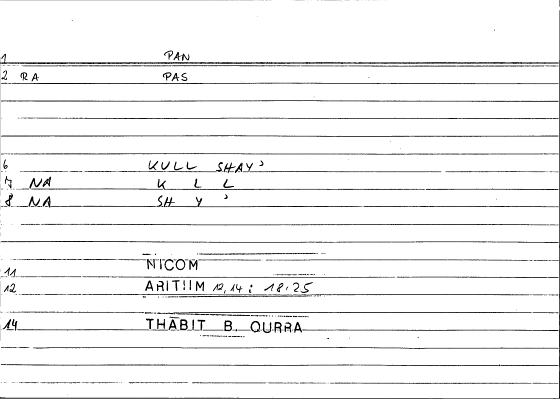 1 PAN
2 RA PAS
6 KULL SHAYʾ
7 NA K L L
8 NA SH Y ʾ
11 NICOM
12 ARITHM 12,14 : 18.25
14 THĀBIT B. QURRA